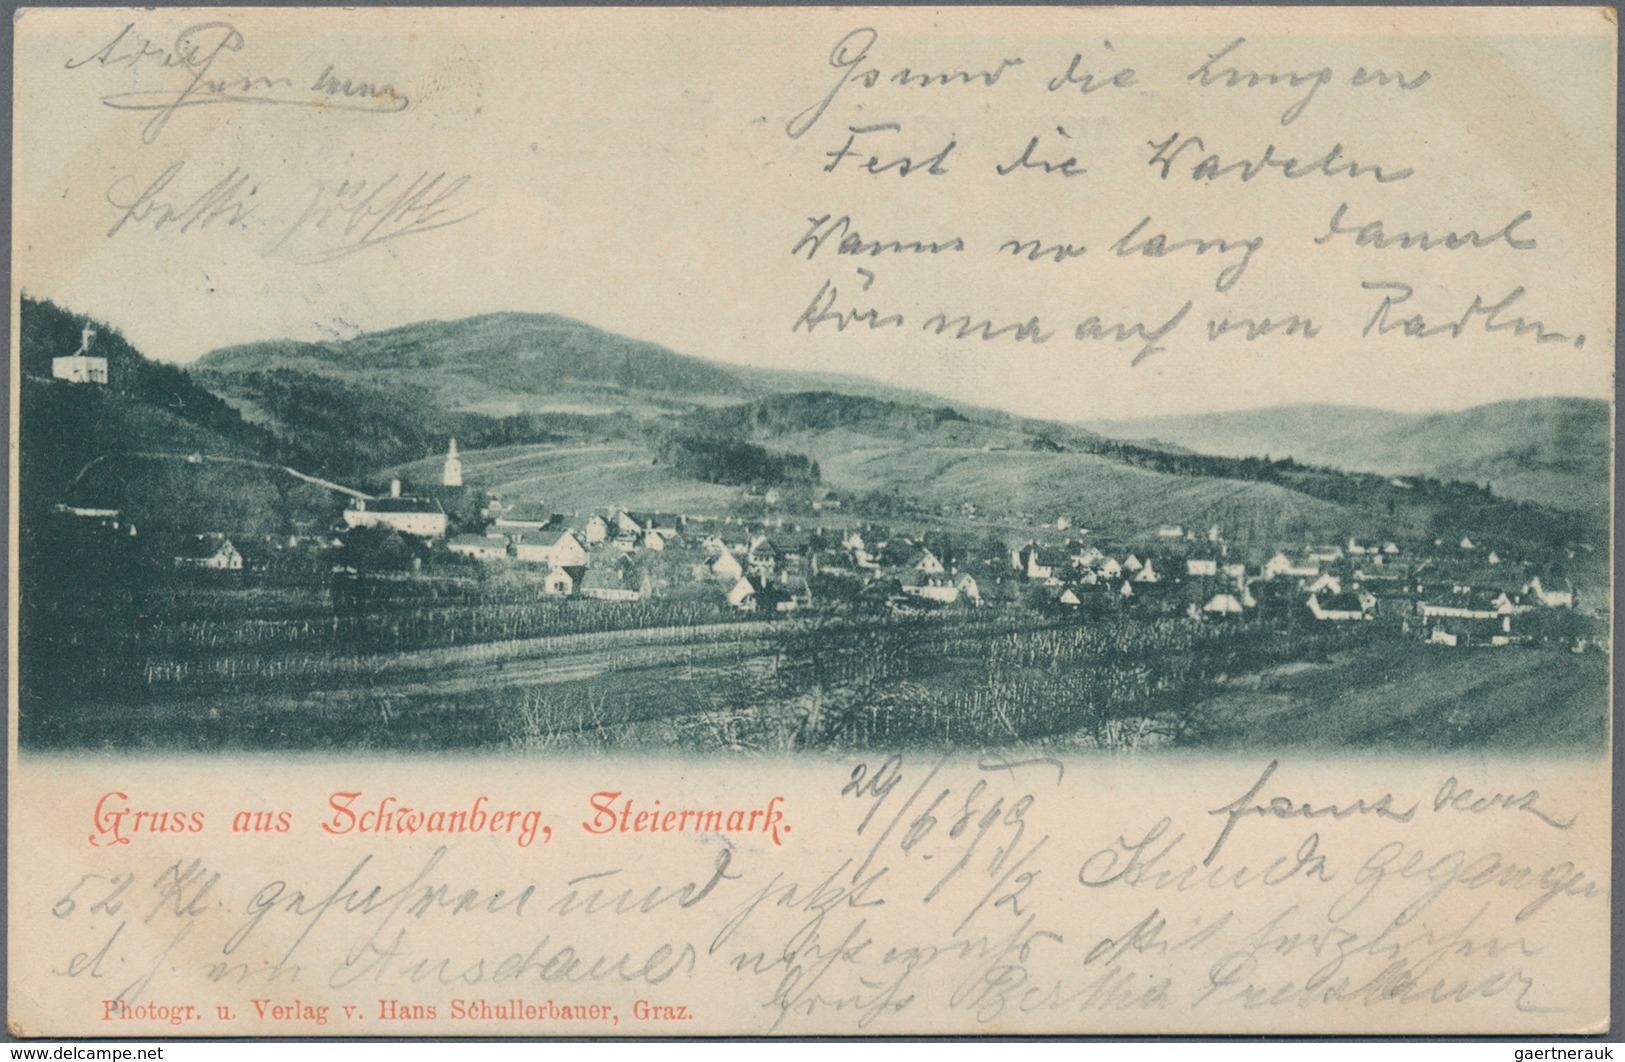 Betti Jöbstl
Gsund die Lungen
Fest die Wadeln
Wanns no lang dauert
Hörn ma auf von Radln.
29/6 899
Franz
Gruss aus Schwanberg, Steiermark.
52 Kl. gefahren und jetzt 1/2 Stunde gegangen
d. h. ein Ausdauer Mit herzlichen
Gruß Bertha
Photogr. u. Verlag v. Hans Schullerbauer, Graz.
www.delcampe.net
gaertnerauk